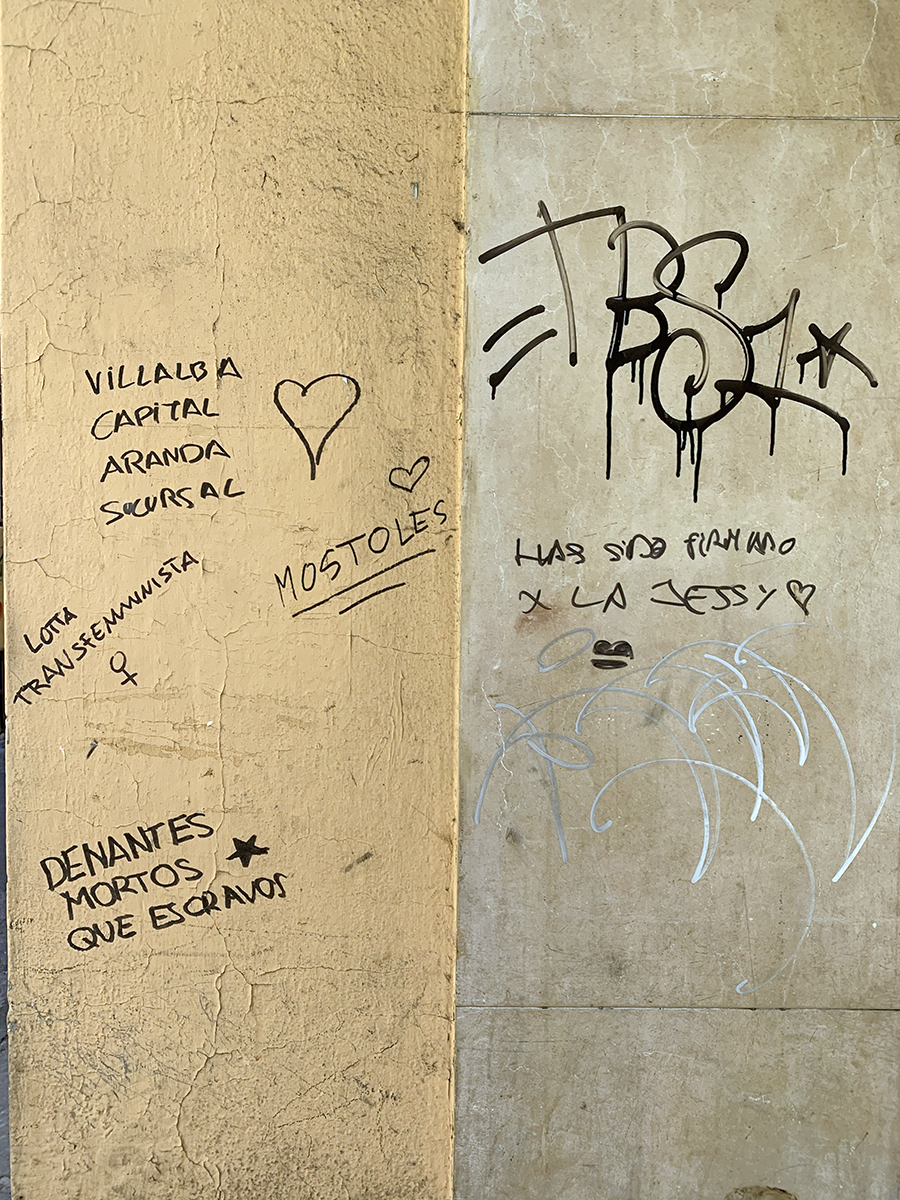 VILLALBA
CAPITAL
ARANDA
SUCURSAL
MOSTOLES
LOTTA
TRANSFEMMINISTA
DENANTES
MORTOS
QUE ESCRAVOS
HAS SIDO FIRMADO
X LA JESSY